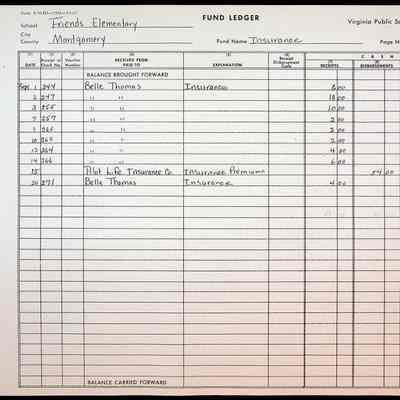 FUND LEDGER
School Friends Elementary
Virginia Public Sc
City
County Montgomery
Fund Name Insurance
Page N
(1) DATE
(2) Receipt or Check No.
(3) Voucher Number
(4) RECEIVED FROM PAID TO
(5) EXPLANATION
(6) Receipt Disbursement Code
(7) RECEIPTS
C A S H
(8) DISBURSEMENTS
BALANCE BROUGHT FORWARD
Sept. 1 244 Belle Thomas Insurance 8 00
2 247 " " 18 00
3 255 " " 10 00
7 257 " " 2 00
9 260 " " 2 00
10 262 " " 2 00
13 264 " " 4 00
14 266 " " 6 00
15 Pilot Life Insurance Co. Insurance Premiums 54 00
20 271 Belle Thomas Insurance 4 00
BALANCE CARRIED FORWARD